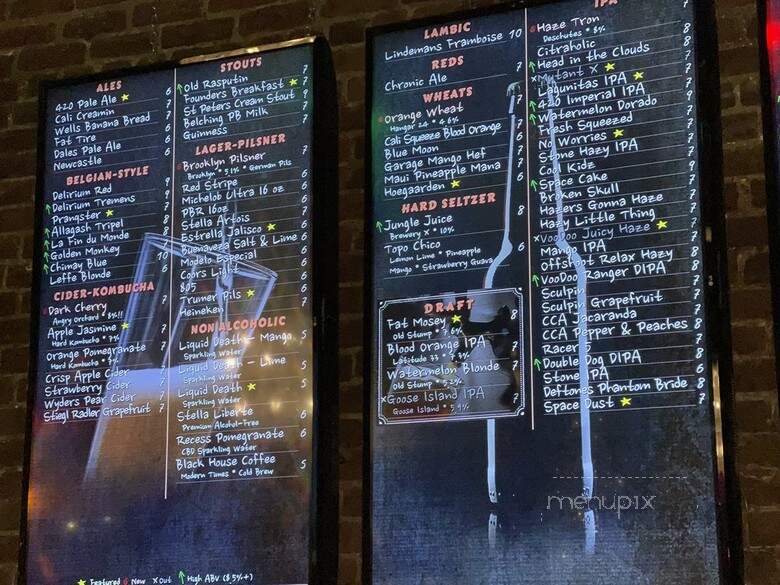 ALES
420 Pale Ale 6
Cali Creamin 7
Wells Banana Bread 7
Fat Tire 6
Dales Pale Ale 6
Newcastle 6
BELGIAN-STYLE
Delirium Red 9
Delirium Tremens 9
Prangster 7
Allagash Tripel 8
La Fin du Monde 8
Golden Monkey 7
Chimay Blue 10
Leffe Blonde 6
CIDER-KOMBUCHA
Dark Cherry 7
Angry Orchard * 8%!!
Apple Jasmine 7
Hard Kombucha * 7%
Orange Pomegranate 7
Hard Kombucha
Crisp Apple Cider 7
Strawberry Cider 7
Wyders Pear Cider 7
Stiegl Radler Grapefruit 7
STOUTS
Old Rasputin 7
Founders Breakfast 7
St Peters Cream Stout 9
Belching PB Milk 7
Guinness 7
LAGER-PILSNER
Brooklyn Pilsner 7
Brooklyn * 5.1% * German Pils
Red Stripe
Michelob Ultra 16 oz 6
PBR 16oz
Stella Artois
Estrella Jalisco
Buenaveza Salt & Lime 6
Modelo Especial
Coors Light
805
Trumer Pils
Heineken
NON ALCOHOLIC
Liquid Death - Mango 5
Sparkling Water
Liquid Death - Lime 5
Sparkling Water
Liquid Death 5
Sparkling Water
Stella Liberte 6
Premium Alcohol-Free
Recess Pomegranate 6
CBD Sparkling Water
Black House Coffee 5
Modern Times * Cold Brew
Featured New X Out High ABV (8.5%+)
LAMBIC
Lindemans Framboise 10
REDS
Chronic Ale 7
WHEATS
Orange Wheat 7
Hangar 24 * 4.6%
Cali Squeeze Blood Orange 6
Blue Moon 6
Garage Mango Hef 7
Maui Pineapple Mana 7
Hoegaarden 6
HARD SELTZER
Jungle Juice 8
Brewery X * 10%
Topo Chico 6
Lemon Lime * Pineapple
Mango * Strawberry Guava
DRAFT
Fat Mosey 8
Old Stump
Blood Orange IPA 7
Latitude 33
Watermelon Blonde 7
Old Stump
X Goose Island IPA 7
Goose Island * 5.9%
IPA 7
Haze Tron 8
Deschutes * 8%
Citraholic 7
Head in the Clouds 8
X Mutant X
Lagunitas IPA 7
420 Imperial IPA
Watermelon Dorado
Fresh Squeezed
No Worries
Stone Hazy IPA
Cool Kidz
Space Cake
Broken Skull
Hazers Gonna Haze
Hazy Little Thing
X VooDoo Juicy Haze
Mango IPA
Offshoot Relax Hazy
VooDoo Ranger DIPA
Sculpin
Sculpin Grapefruit
CCA Jacaranda
CCA Pepper & Peaches 8
Racer 5
Double Dog DIPA 8
Stone IPA 6
Deftones Phantom Bride 8
Space Dust 7
menupix